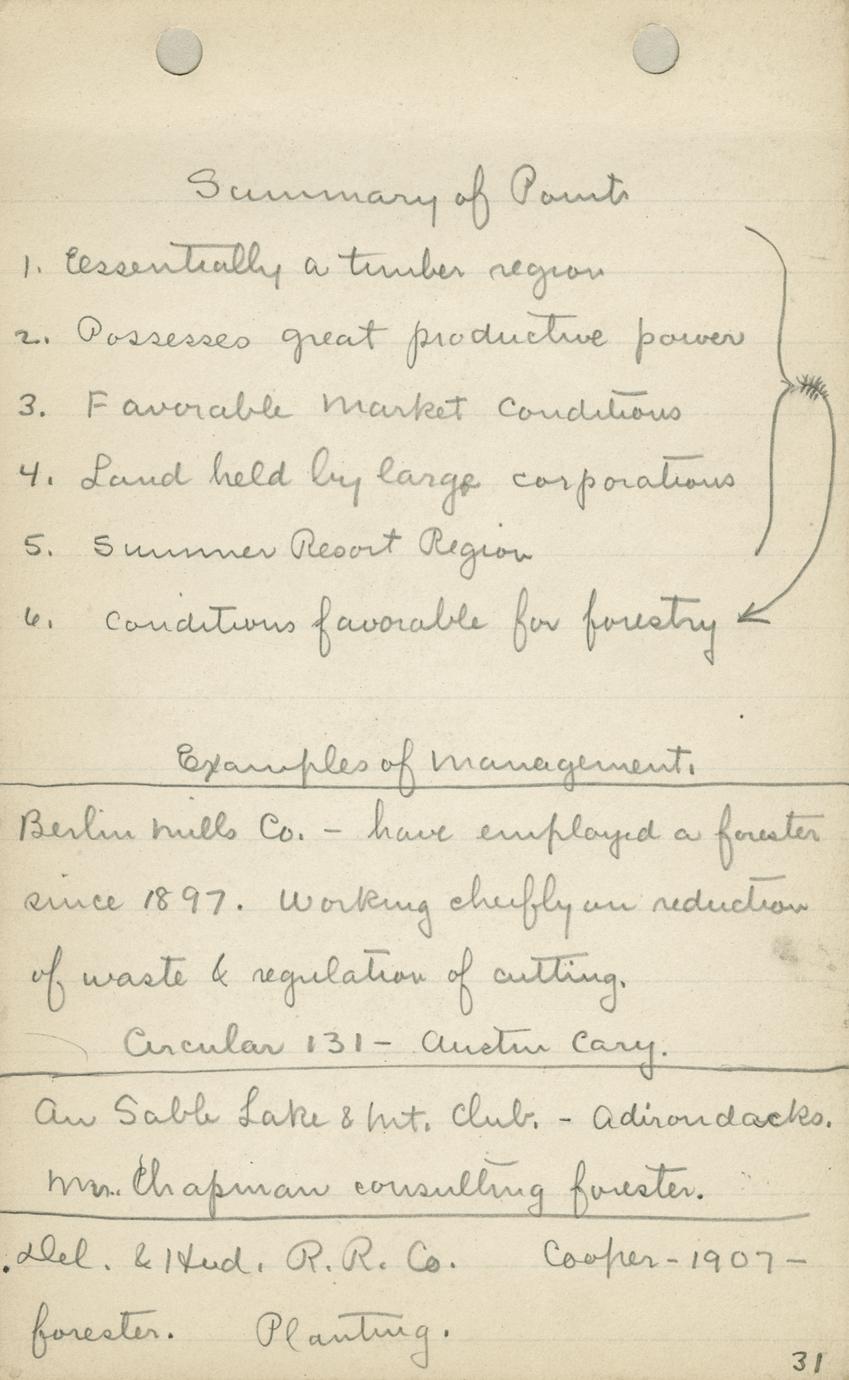 Summary of Points
1. Essentially a timber region
2. Possesses great productive power
3. Favorable Market Conditions
4. Land held by large corporations
5. Summer Resort Region
6. Conditions favorable for forestry
Examples of Management.
Berlin Mills Co. - have employed a forester
since 1897. Working cheifly on reduction
of waste & regulation of cutting.
Circular 131 - Austin Cary.
Au Sable Lake & Mt. Club. - Adirondacks.
Mr. Chapman consulting forester.
Del. & Hud. R.R. Co. Cooper - 1907 -
forester. Planting.
31